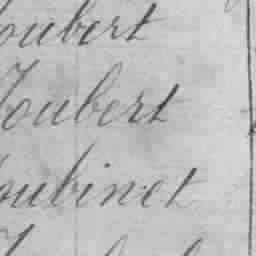 Joubert
Joubert
Joubinet